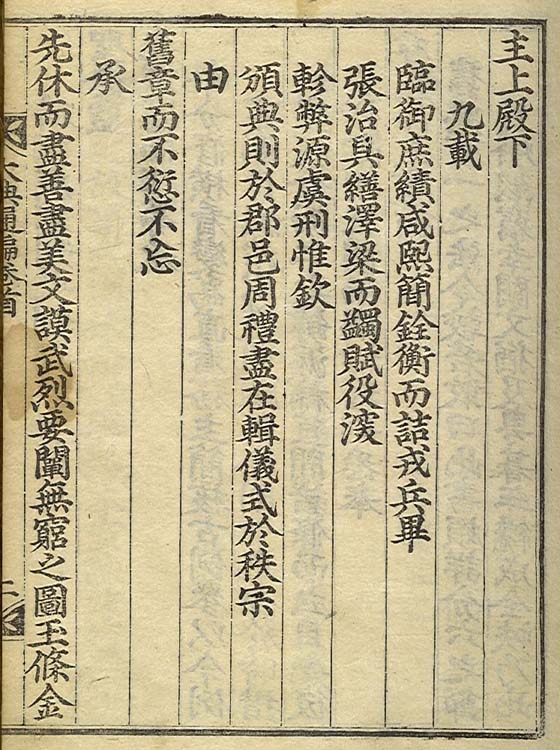 主上殿下
九載
臨御庶績咸熙簡銓衡而詰戎兵畢
張治具繕澤梁而蠲賦役濊
軫弊源虞刑惟欽
頒典則於郡邑周禮盡在輯儀式於秩宗
由
舊章而不愆不忘
承
先休而盡善盡美文謨武烈要闡無窮之圖玉條金
大典通編卷首